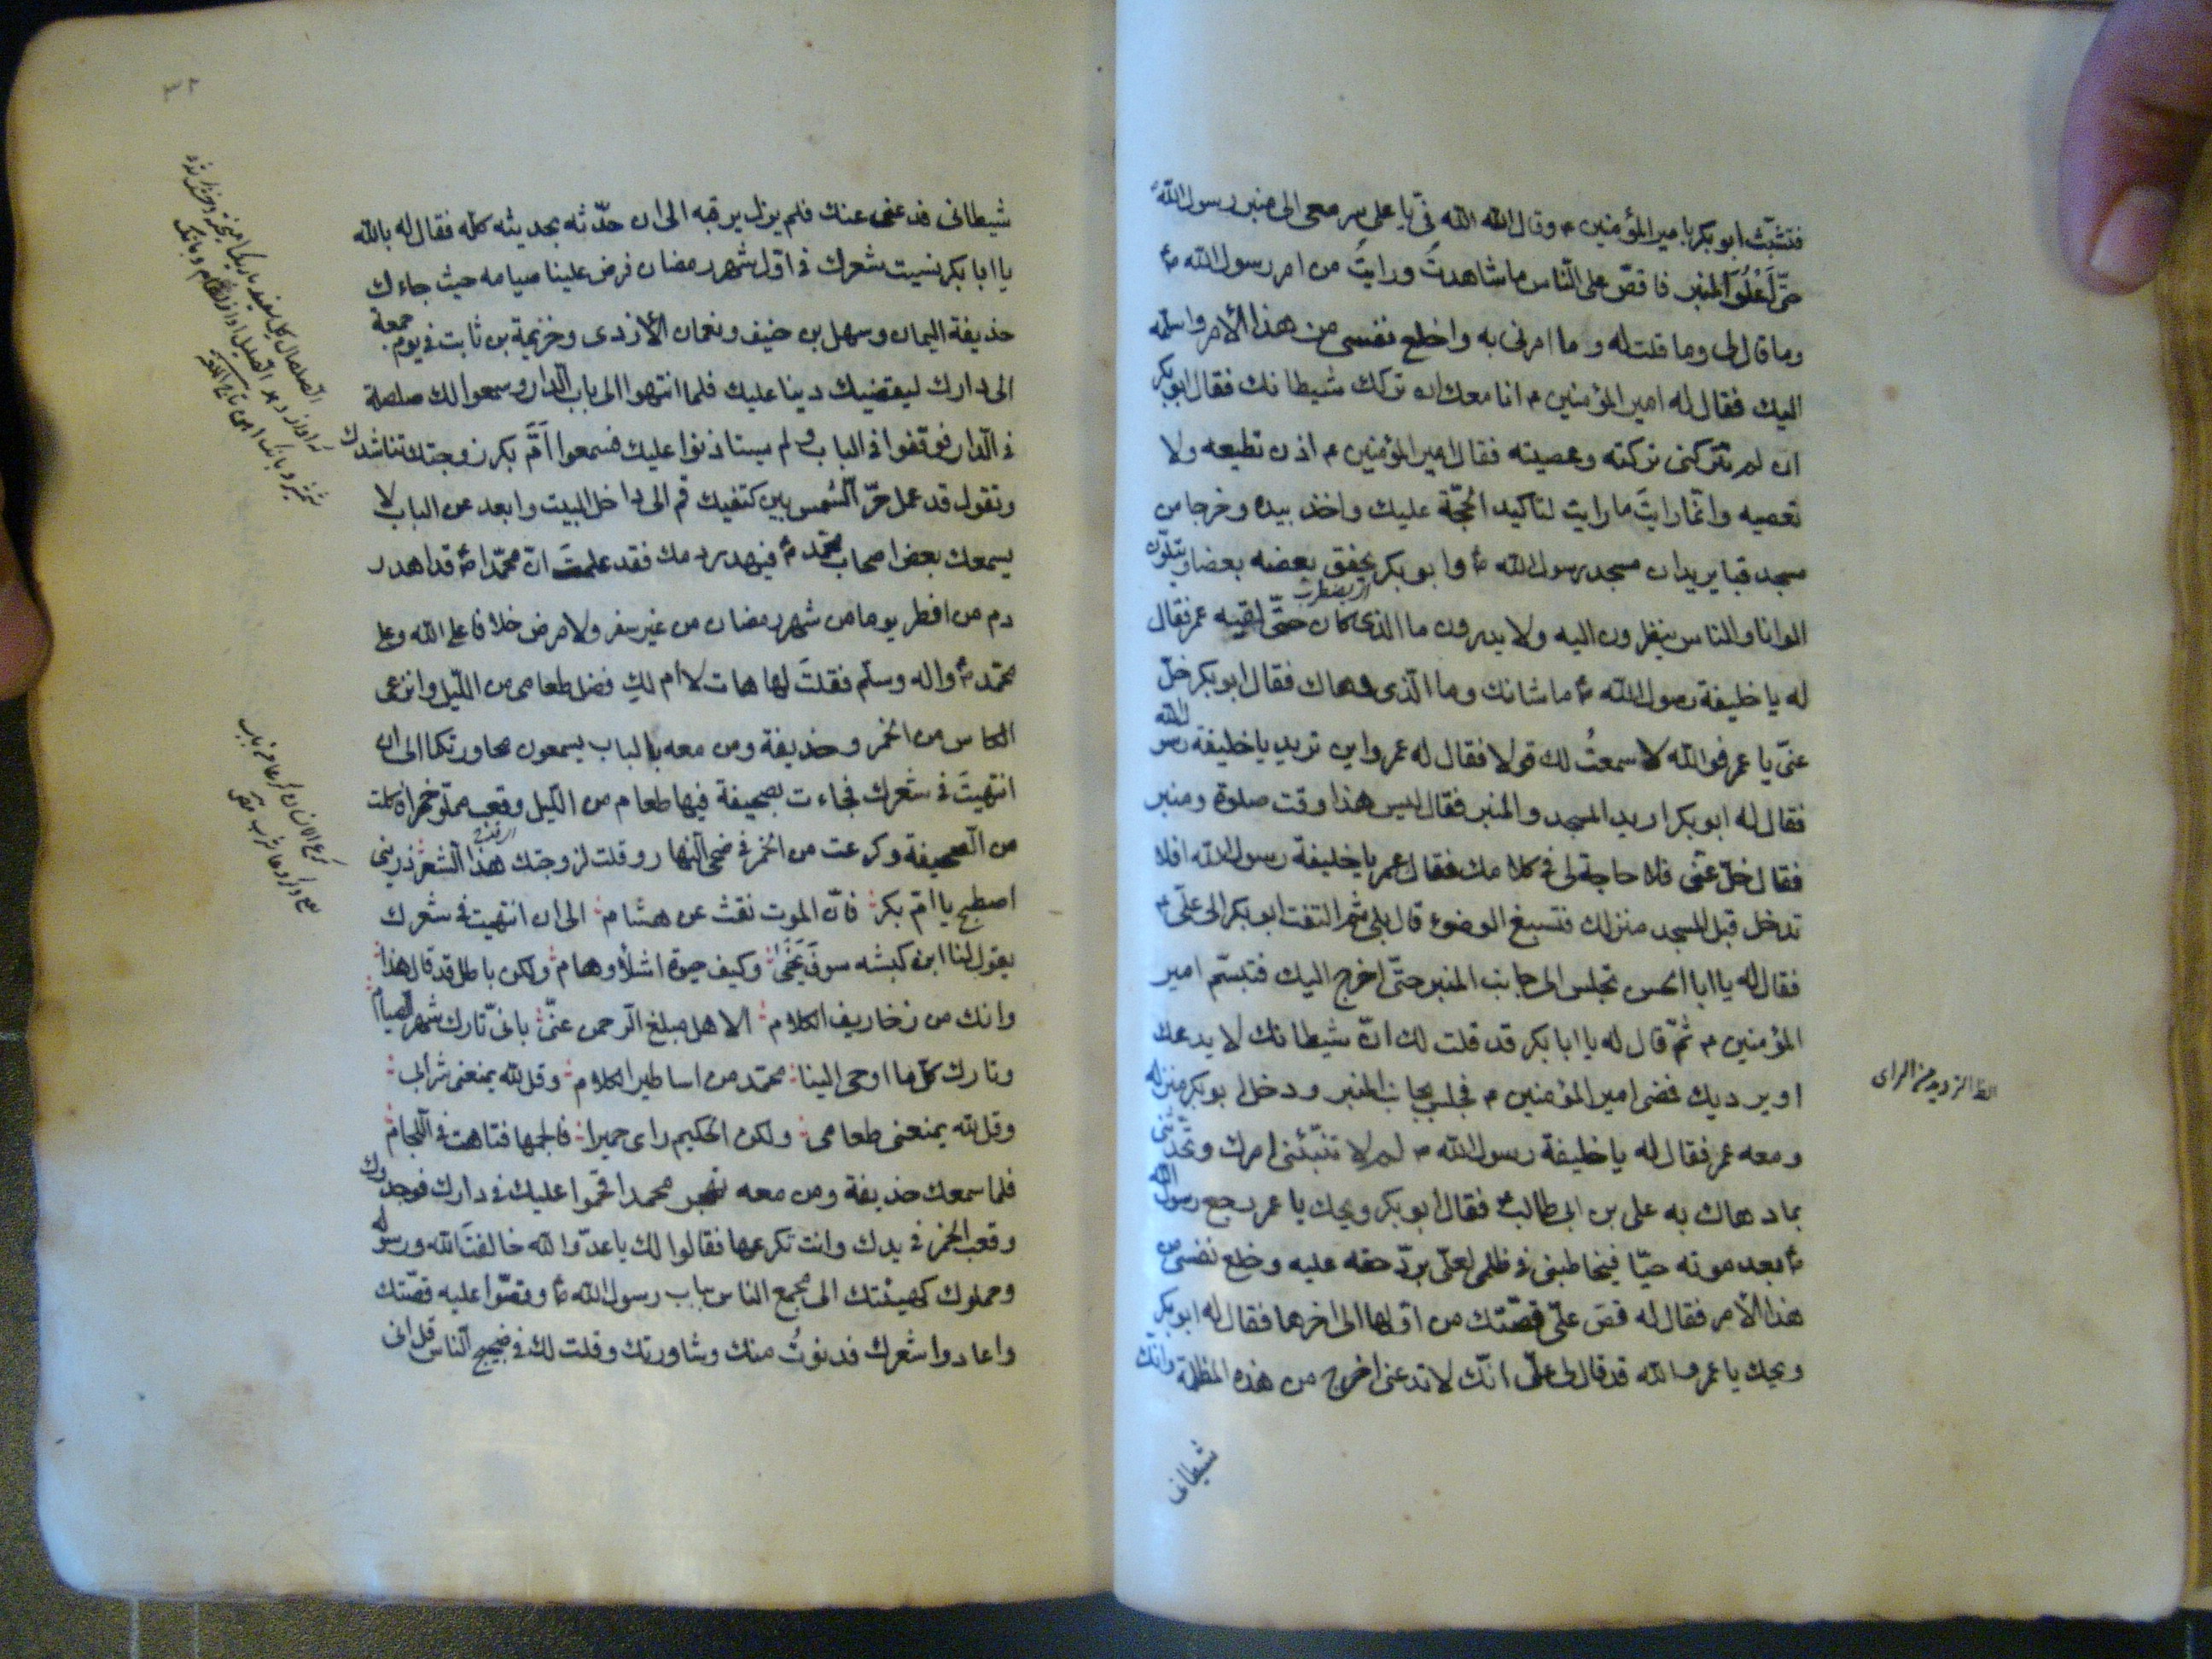 فتشبّث ابو بكر بامير المؤمنين م وقال الله الله فيّ يا على سر معى الى منبر رسول الله
حتّى اَعْلُوَ المنبر فاقصّ على النّاس ما شاهدتُ ورايتُ من امر رسول الله ص
وما قال لى وما قلت له وما امرنى به واخلع نفسى من هذا الأمر واسلّمه
اليك فقال له امير المؤمنين م انا معك ان تركك شيطانك فقال ابو بكر
ان لم يتركنى تركته وعصيته فقال امير المؤمنين م اذن تطيعه ولا
تعصيه وانّما رايتَ ما رايت لتاكيد الحجّة عليك واخذ بيده وخرجا من
مسجد قبا يريدان مسجد رسول الله ص وابو بكر يخفق بعضه بعضا ويتلوّن
اى يضطرب
الوانا والناس ينظرون اليه ولا يدرون ما الذى كان حتّى لقيه عمر فقال
له يا خليفة رسول الله ص ما شانك وما الّذى دهاك فقال ابو بكر خلّ
عنّى يا عمر فو الله لا سمعتُ لك قولا فقال له عمر واين تريد يا خليفة رسول الله
فقال له ابو بكر اريد المسجد والمنبر فقال ليس هذا وقت صلوة ومنبر
فقال خلّ عنّى فلا حاجة لى فى كلامك فقال عمر يا خليفة رسول الله افلا
تدخل قبل المسجد منزلك فتسبغ الوضوء قال بلى ثم التفت ابو بكر الى علّى م
فقال له يا ابا الحسن تجلس الى جانب المنبر حتّى اخرج اليك فتبسّم امير
المؤمنين م ثمّ قال له يا ابا بكر قد قلت لك انّ شيطانك لا يدعك
او يرديك فمضى امير المؤمنين م فجلس بجانب المنبر ودخل ابو بكر منزله
ومعه عمر فقال له يا خليفة رسول الله م لم لا تنبّئنى امرك وتحدّثنى
بما دهاك به على بن ابى طالب فقال ابو بكر ويحك يا عمر رجع رسول الله
ص بعد موته حيّا فيخاطبنى فى ظلمى لعلّى بردّ حقه عليه وخلع نفسى من
هذا الأمر فقال له قصّ علىّ قصّتك من اوّلها الى اخرها فقال له ابو بكر
ويحك يا عمر والله قد قال لى علىّ انّك لا تدعنى اخرج من هذه المظلمة وانّك
شيطانى
شيطانى فدعنى عنك فلم يزل يرقبه الى ان حدّثه بحديثه كلّه فقال له بالله
يا ابا بكر نسيت شعرك فى اوّل شهر رمضان فرض علينا صيامه حيث جاءك
حذيفة اليمان وسهل بن حنيف ونعمان الأزدى وخزيمة بن ثابت فى يوم جمعة
الى دارك ليقضينك دينا عليك فلما انتهوا الى باب الدار وسمعوا لك صلصلة
فى الدّار فوقفوا فى الباب ولم يستاذنوا عليك فسمعوا امّ بكر زوجتك تناشدك
وتقول قد عمل حرّ الشمس بين كتفيك قم الى داخل البيت وابعد عن الباب لا
يسمعك بعض اصحاب محمّد ص فيهدر دمك فقد علمتَ انّ محمّدا ص قد اهدر
دم من افطر يوما من شهر رمضان من غير سفر ولا مرض خلافا على الله وعلى
محمّد ص واله وسلّم فقلتَ لها هات لا ام لكِ فضل طعامى من اللّيل وانزعى
الكاس من الخمر وحذيفة ومن معه بالباب يسمعون محاورتكما الى ان
انتهيتَ فى شعرك فجاءت بصحيفة فيها طعام من اللّيل وقعب مملوّ خمرا فاكلت
من الصحيفة وكرعت من الخمر فى ضحى النّهار وقلت لزوجتك هذا الشعر ذرينى
اصطبح يا امّ بكر فانّ الموت نقث عن هشام الى ان انتهيت فى شعرك
يقول لنا ابن كبشه سوفَ نحيى وكيف حيوة اشلاء وهام ولكن باطل قد قال هذا
وانك من زخاريف الكلام الا هل مبلغ الرّحمن عنّى بانى تارك شهر الصيام
وتارك كلّ ما اوحى الينا محمّد من اساطير الكلام وقل لله يمنعنى شرابى
وقل لله يمنعنى طعامى ولكن الحكيم راى حميرا فالجمها فتاهت فى اللّجام
فلما سمعك حذيفة ومن معه تهجو محمدا قحموا عليك فى دارك فوجدوك
وقعب الخمر فى يدك وانت تكرعها فقالوا لك يا عدوّ الله خالفتَ الله ورسوله
وحملوك كهيئتك الى مجمع الناس بباب رسول الله ص وقصّوا عليه قصّتك
واعادوا شعرك فدنوتُ منك وشاورتك وقلت لك فى ضجيج النّاس قل انى